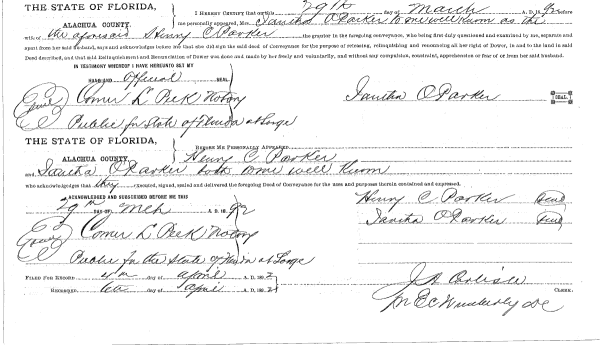 THE STATE OF FLORIDA, I HEREBY CERTIFY that on this 29th day of March A. D. 1892 before
ALACHUA COUNTY. me personally appeared, Mrs. O Parker to me well known as the
wife of the aforesaid Henry C. Parker the grantor in the foregoing conveyance, who being first duly questioned and examined by me, separate and
apart from her said husband, says and acknowledges before me that she did sign the said deed of Conveyance for the purpose of releasing, relinquishing and renouncing all her right of Dower, in and to the land in said
Deed described, and that said Relinquishment and Renunciation of Dower was done and made by her freely and voluntarily, and without any compulsion, constraint, apprehension or fear of or from her said husband.
IN TESTIMONY WHEREOF I HAVE HEREUNTO SET MY
HAND AND official SEAL. O Parker SEAL.
Seal Comer L Peek Notary
Public for State of Florida at Large
THE STATE OF FLORIDA, BEFORE ME PERSONALLY APPEARED
ALACHUA COUNTY. Henry C. Parker
and O Parker both to me well known
who acknowledges that they executed, signed, sealed and delivered the foregoing Deed of Conveyance for the uses and purposes therein contained and expressed.
ACKNOWLEDGED AND SUBSCRIBED BEFORE ME THIS Henry C. Parker Seal
DAY OF Mch A. D. 1892 O Parker Seal
Seal Comer L Peek Notary
Public for the State of Florida at Large
FILED FOR RECORD day of April A. D. 189 J A Carlisle
RECORDED day of April A. D. 189 CLERK.
Wimberly DC